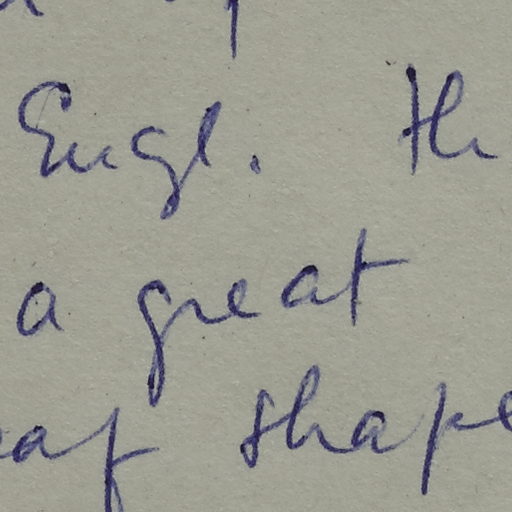 Engl. th
a great
eaf shape